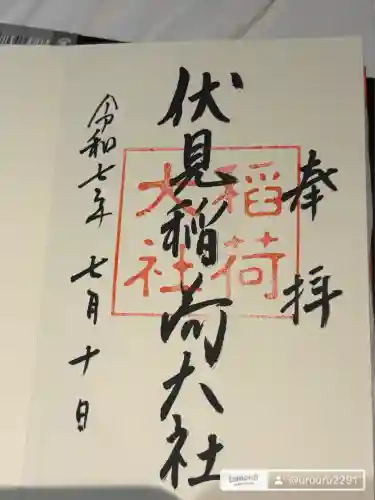 奉拝
伏見稲荷大社
稲荷
大社
令和七年 七月十日
@ururu2291